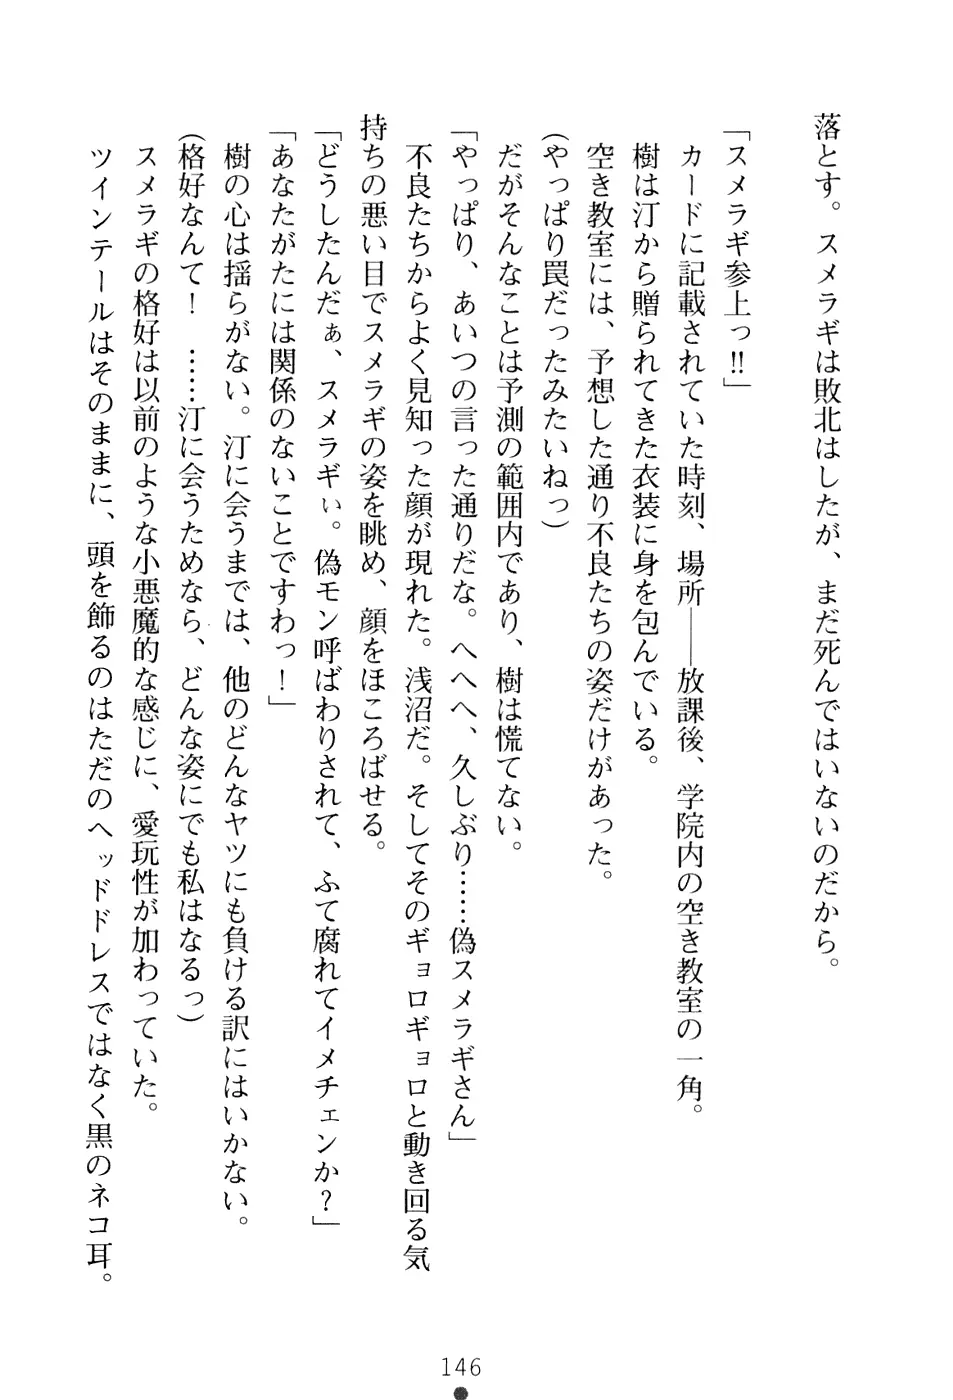 落とす。スメラギは敗北はしたが、まだ死んではいないのだから。
「スメラギ参上っ!!」
カードに記載されていた時刻、場所――放課後、学院内の空き教室の一角。
樹は汀から贈られてきた衣装に身を包んでいる。
空き教室には、予想した通り不良たちの姿だけがあった。
(やっぱり罠だったみたいねっ)
だがそんなことは予測の範囲内であり、樹は慌てない。
「やっぱり、あいつの言った通りだな。へへへ、久しぶり……偽スメラギさん」
不良たちからよく見知った顔が現れた。浅沼だ。そしてそのギョロギョロと動き回る気
持ちの悪い目でスメラギの姿を眺め、顔をほころばせる。
「どうしたんだぁ、スメラギぃ。偽モン呼ばわりされて、ふて腐れてイメチェンか?」
「あなたがたには関係のないことですわっ!」
樹の心は揺らがない。汀に会うまでは、他のどんなヤツにも負ける訳にはいかない。
(格好なんて! ……汀に会うためなら、どんな姿にでも私はなるっ)
スメラギの格好は以前のような小悪魔的な感じに、愛玩性が加わっていた。
ツインテールはそのままに、頭を飾るのはただのヘッドドレスではなく黒のネコ耳。
146